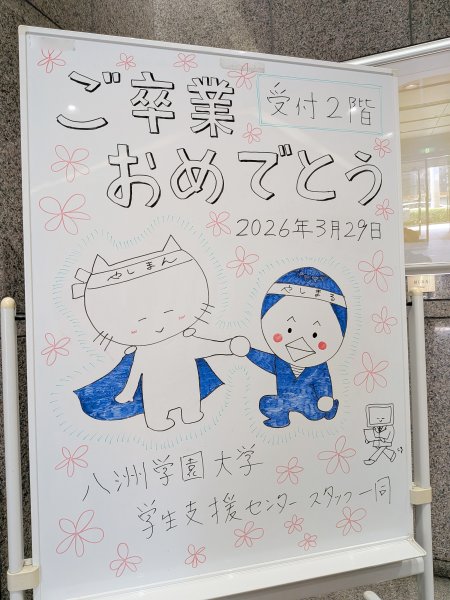 ご卒業
受付2階
おめでとう
2026年3月29日
やしまん
やしまる
八洲学園大学
学生支援センター スタッフ一同